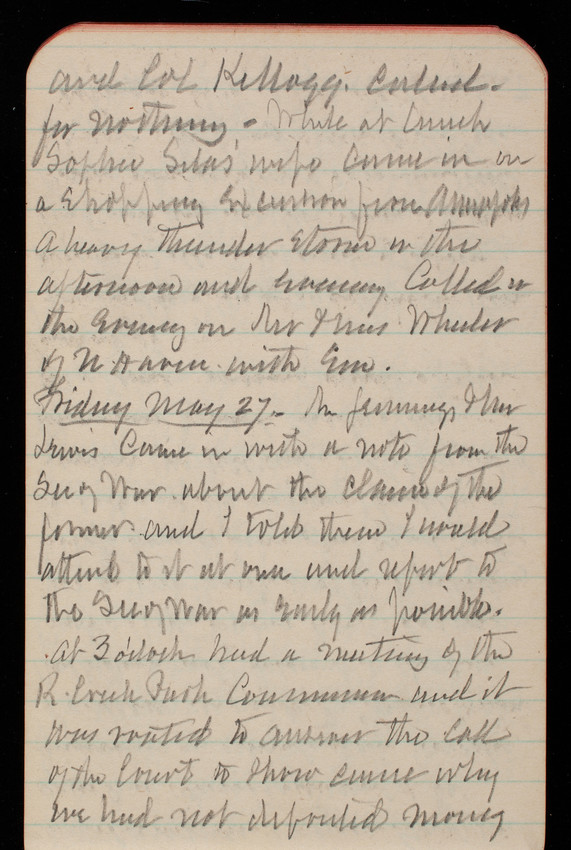 and Col Kellogg. Called
for nothing - While at lunch
Sophie Silas' wife came in on
a Shopping Excursion from Annapolis
A heavy thunder storm in the
afternoon and evening Called in
the Evening on Mr & Mrs Wheeler
of N Haven with Em.
Friday May 27 - Mr Jennings & Mr
Lewis Came in with a note from the
Secy War about the claim of the
former and I told them I would
attend to it at once and report to
the Secy War as Early as possible.
At 3 o'clock had a meeting of the
R. Creek Park Commission and it
was voted to answer the call
of the Court to show cause why
we had not deposited money